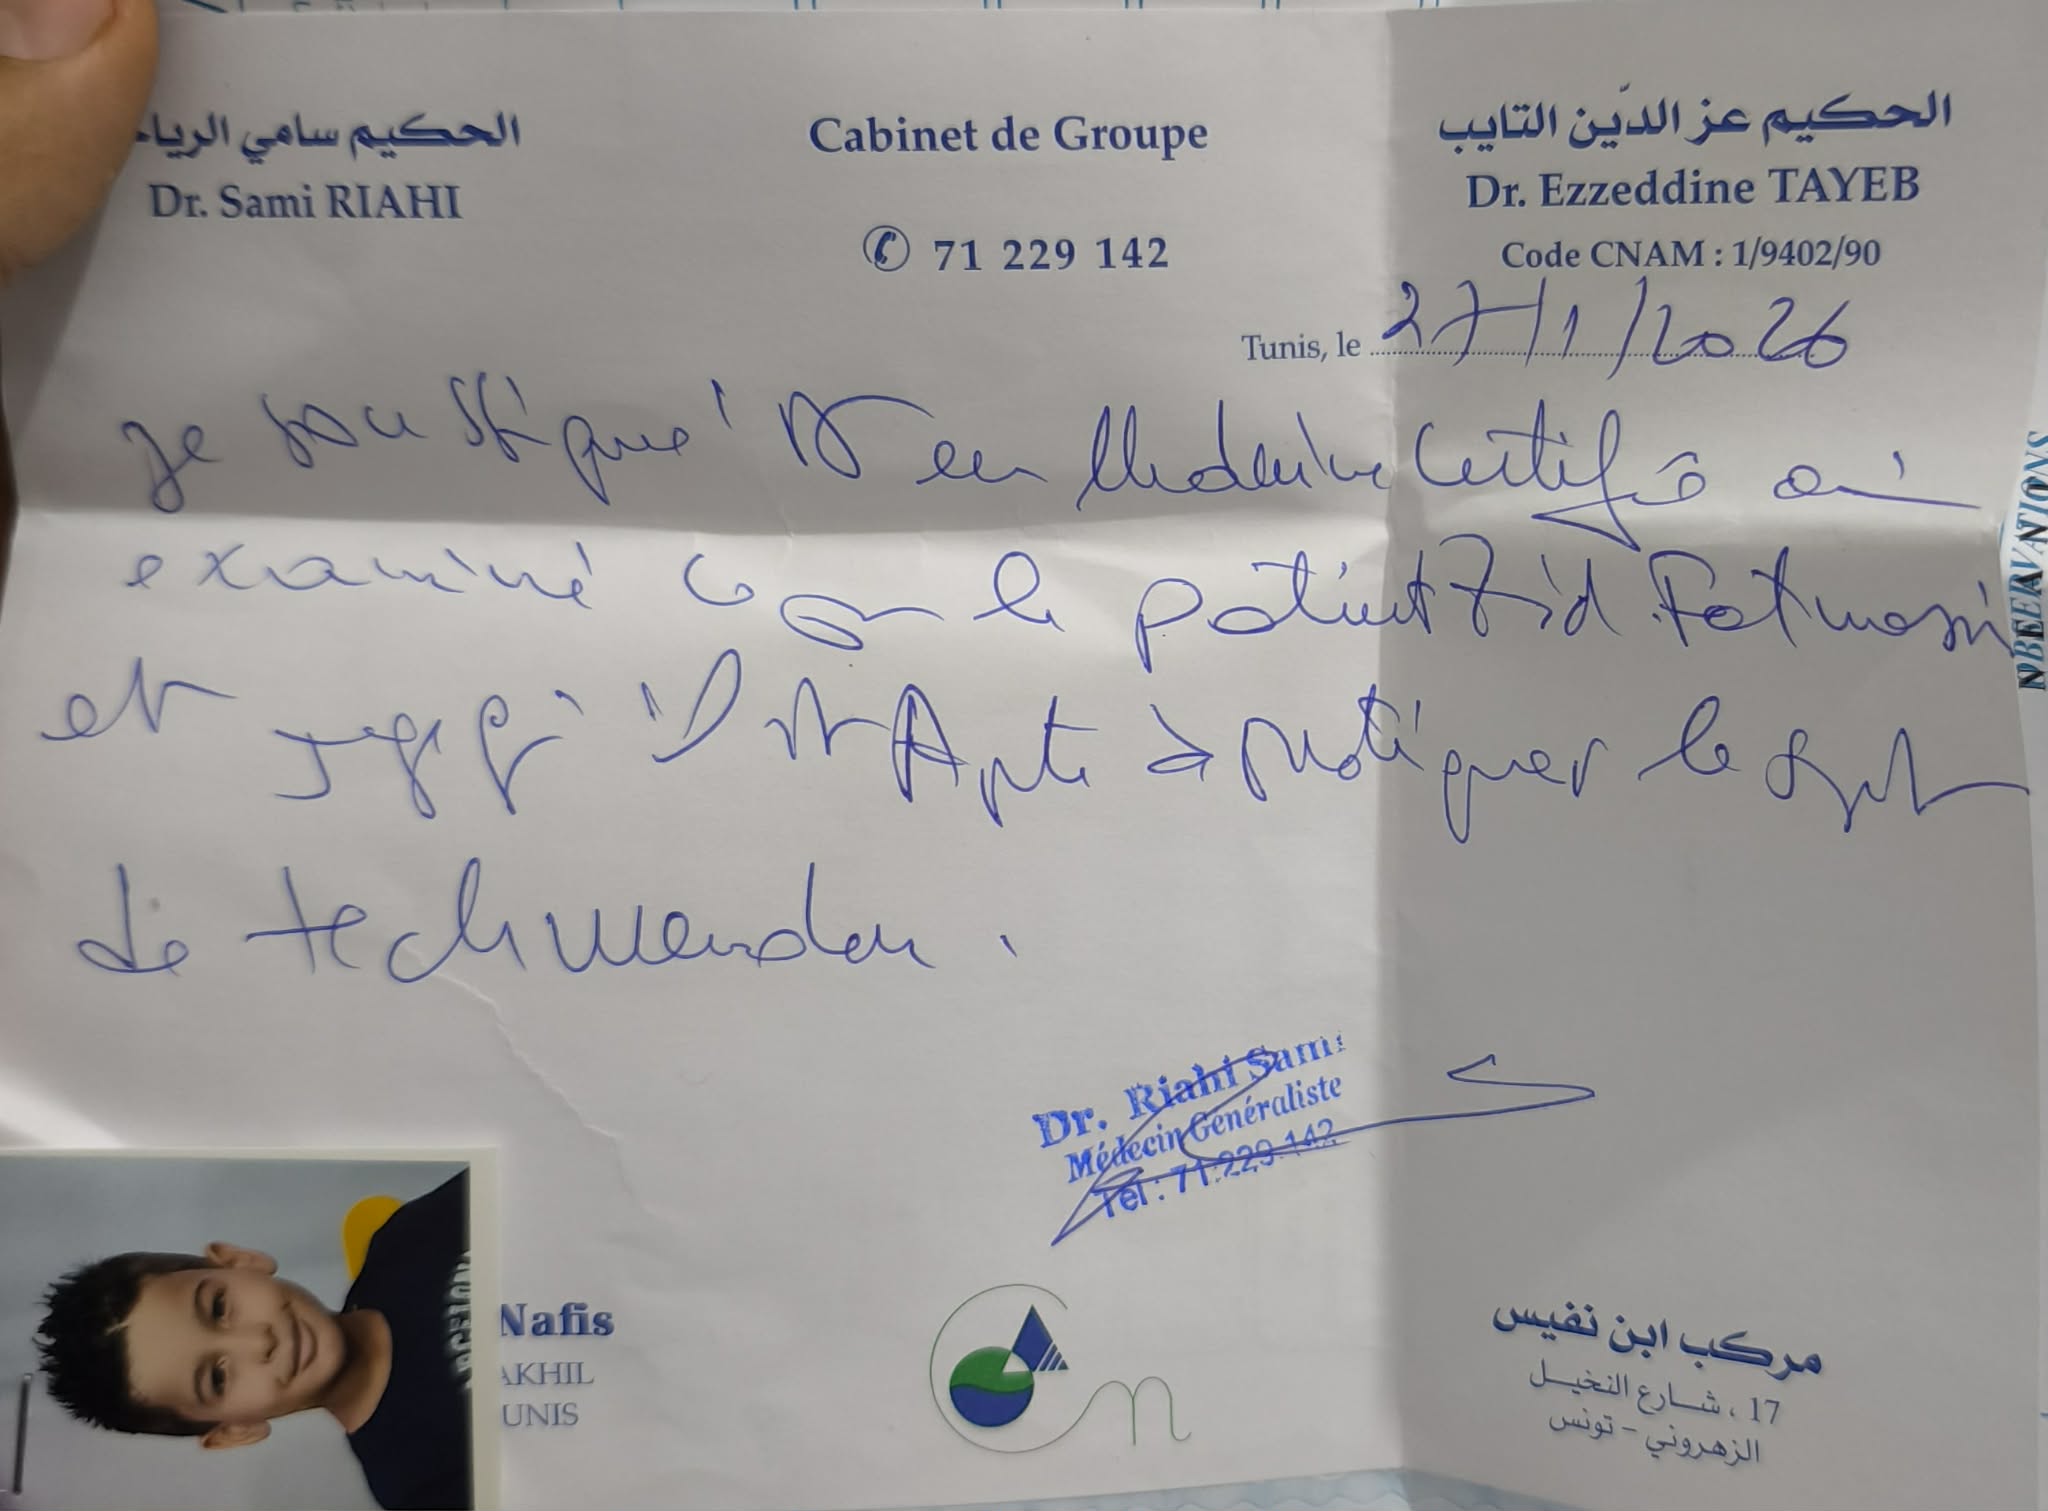 الحكيم سامي الريا
Dr. Sami RIAHI
Cabinet de Groupe
71 229 142
الحكيم عز الدّين التايب
Dr. Ezzeddine TAYEB
Code CNAM : 1/9402/90
Tunis, le 27/1/2026
Je soussigné Dr en Médecine Certifie avoir
examiné ce jour le patient Zid Fatmasi
et juge qu'il est Apte à pratiquer le sport
de
Dr. Riahi Sami
Médecin Généraliste
Tél : 71.229.142
Nafis
AKHIL
UNIS
مركب ابن نفيس
17 ، شارع النخيل
الزهروني - تونس
OBSERVATIONS